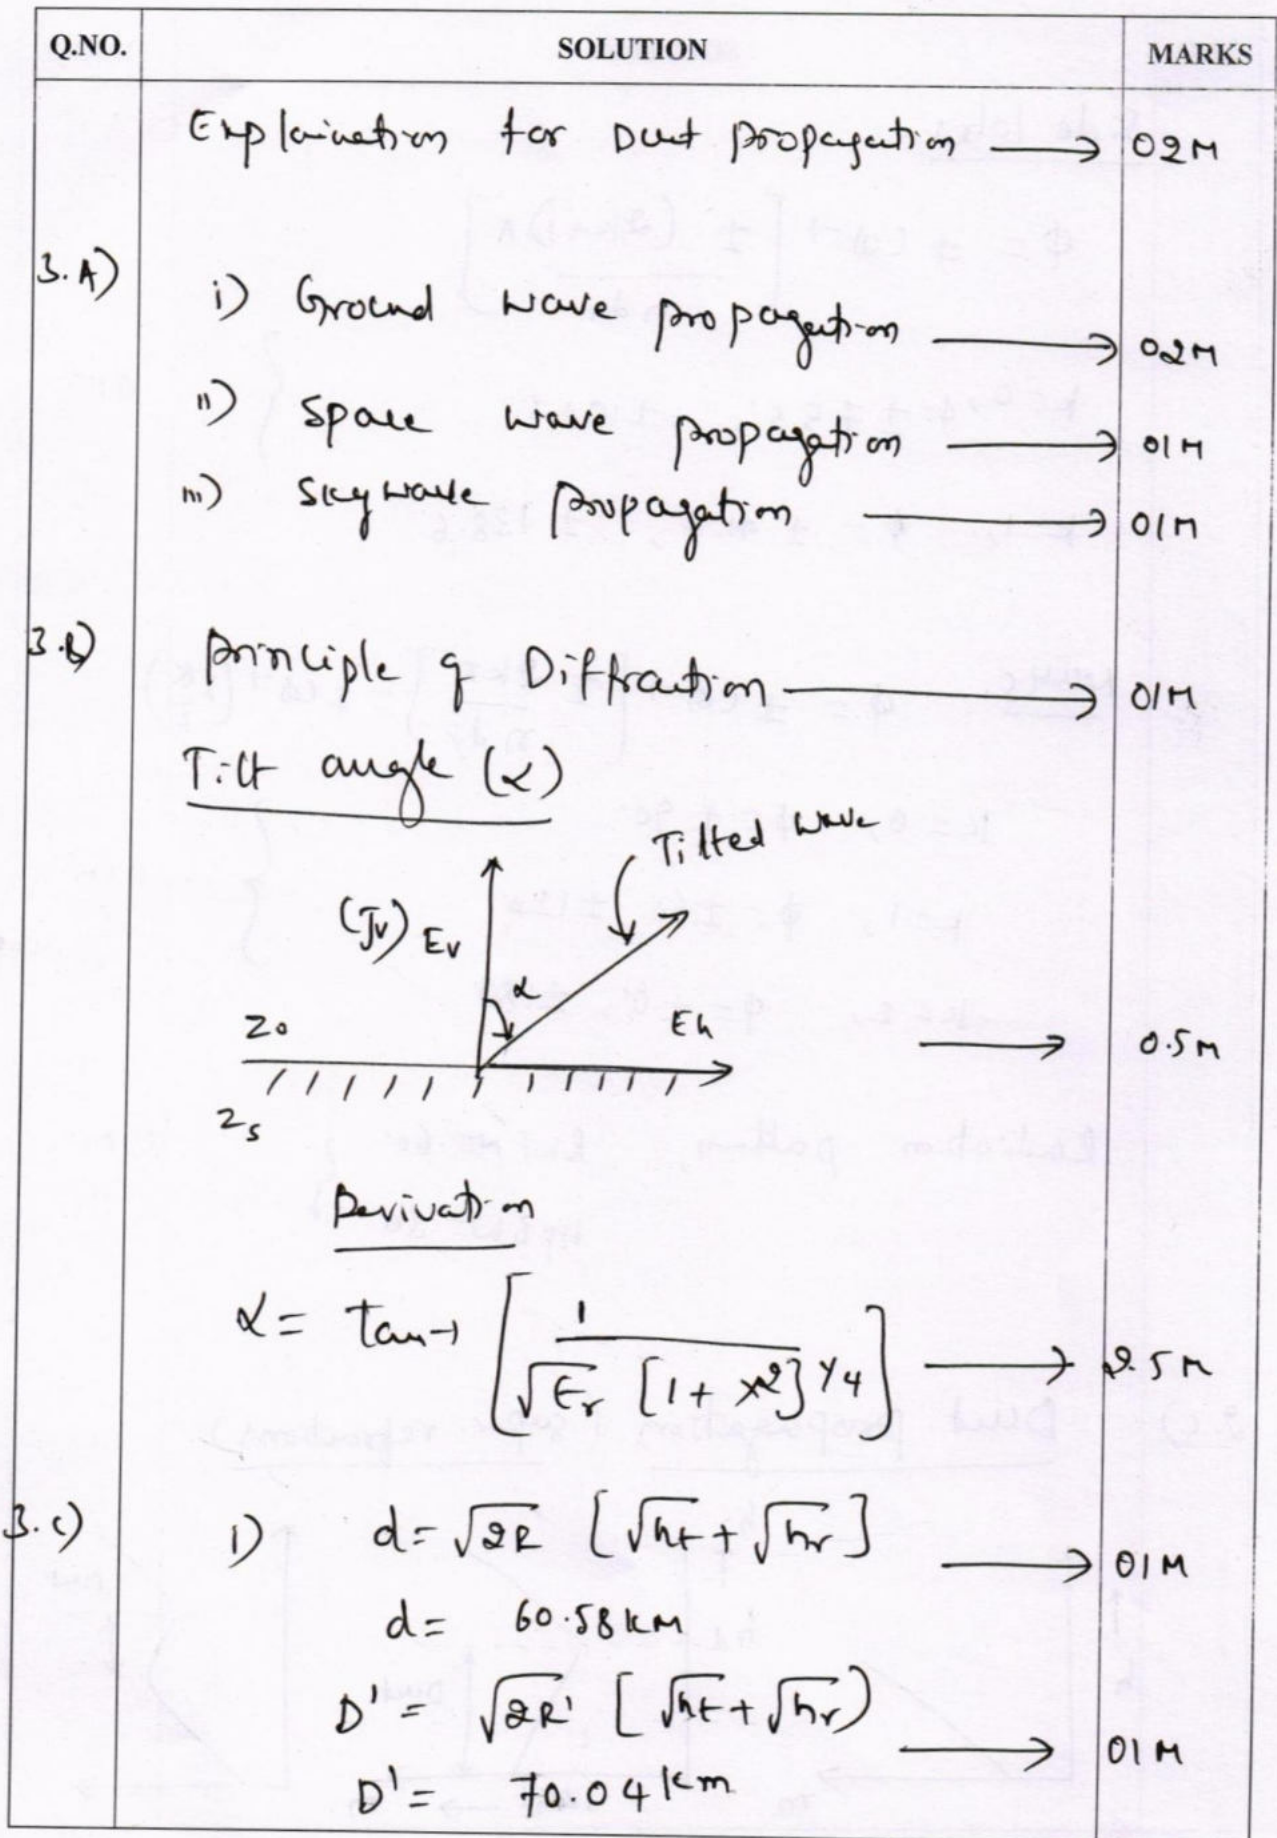 Q.NO. SOLUTION MARKS
Explaination for Duct propagation → 02M
3.A)
i) Ground wave propagation → 02M
ii) Space wave propagation → 01M
iii) Sky wave propagation → 01M
3.B) Principle of Diffraction → 01M
Tilt angle (α)
Tilted wave
(Jv) Ev
α
Z0 Eh → 0.5M
Zs
Derivation
α = Tan-1 [ 1 / √Er [1 + x2] 1/4 ] → 2.5M
3.C) 1) d = √2R [√ht + √hr] → 01M
d = 60.58 KM
D' = √2R' [√ht + √hr) → 01M
D' = 70.04 km